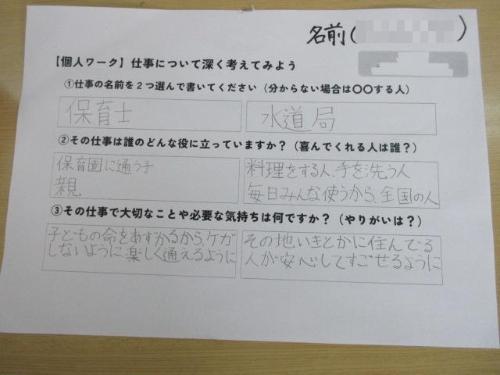 名前( )
【個人ワーク】仕事について深く考えてみよう
①仕事の名前を２つ選んで書いてください（分からない場合は〇〇する人）
保育士
水道局
②その仕事は誰のどんな役に立っていますか？（喜んでくれる人は誰？）
保育園に通う子
親
料理をする人、手を洗う人
毎日みんな使うから、全国の人
③その仕事で大切なことや必要な気持ちは何ですか？（やりがいは？）
子どもの命をあずかるから、ケガ
しないように楽しく通えるように
その地いきとかに住んでる
人が安心してすごせるように